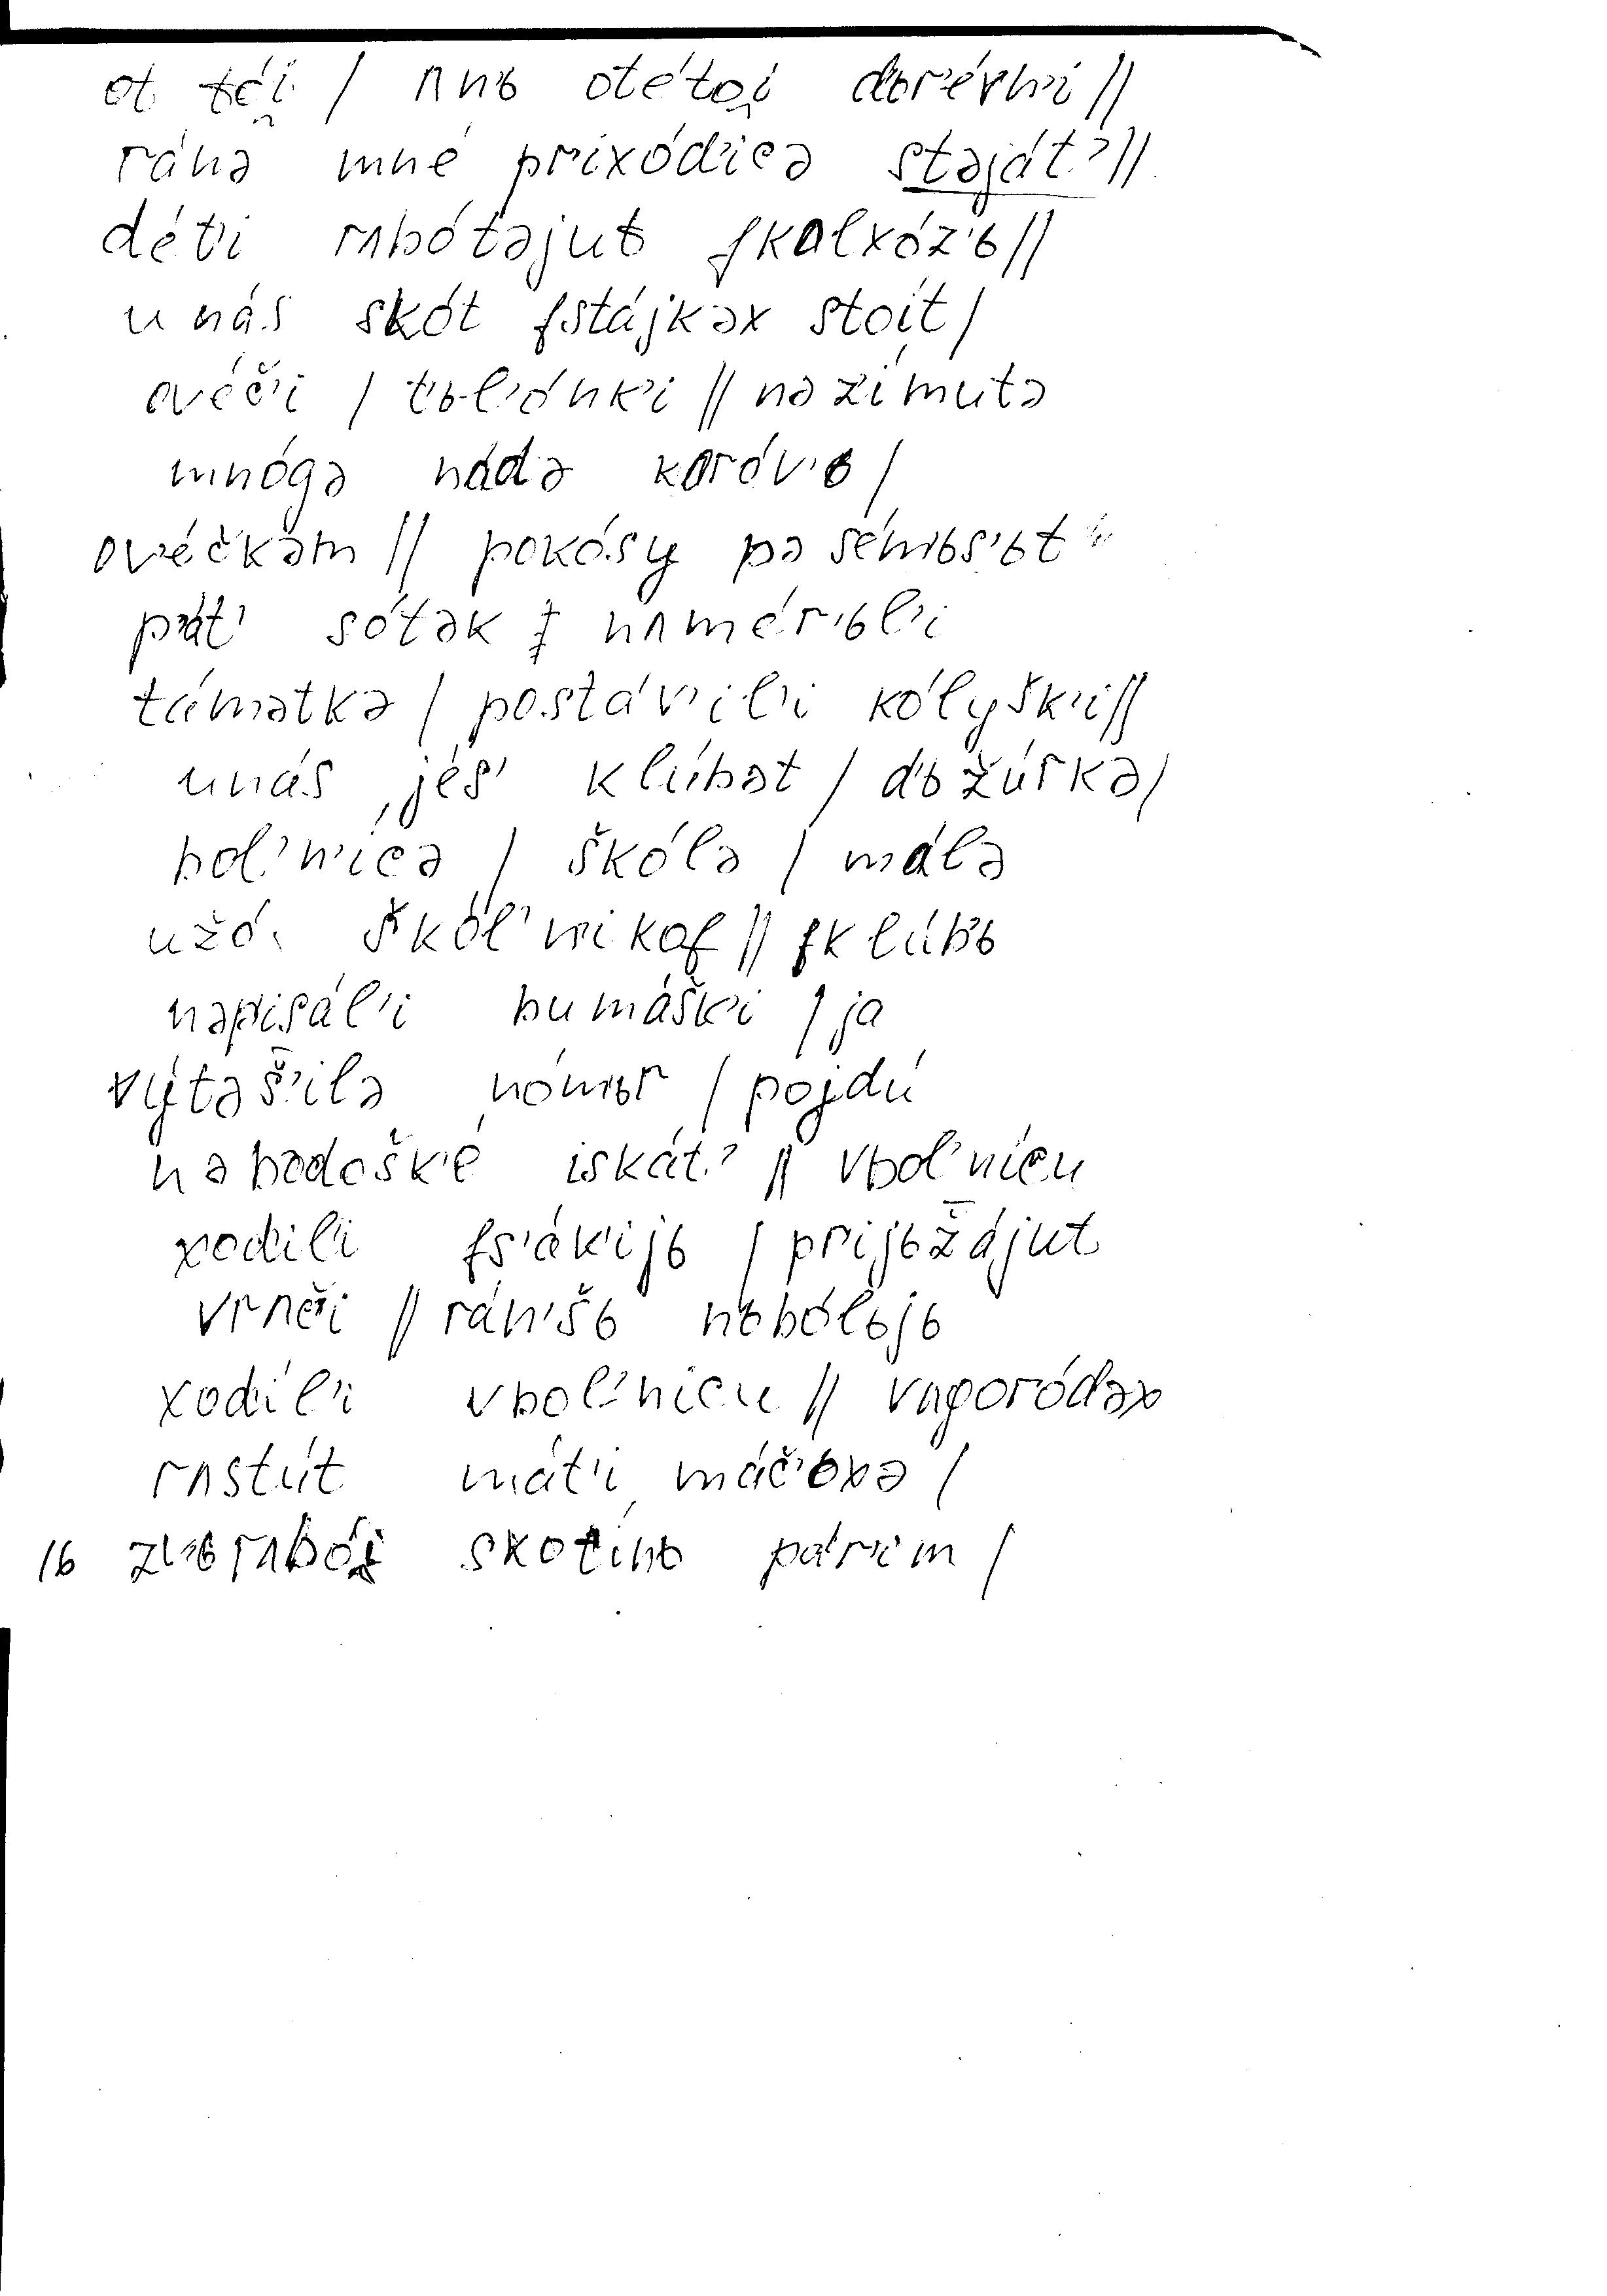 ot téi̯ / ʌnь otétoi̯ dьrévn'i //
ránə mné pr'ixód'icə stəját' //
dét'i rʌbótəjut fkalxóz'ь //
u nás skót fstájkəx stoít /
ovéč'i / t'ьl'ónk'i // nə zímutə
mnógə nádə koróv'ь /
ov'éčkəm // pokósy pə sém'ьs'ьt
p'át' sótək ‡ nʌmér'ьl'i
támətkə / postáv'il'i kólyšk'i //
unás jés' klúbət / d'ьžúrkə /
bol'n'icə / škólə / málə
užó škól'n'ikof // fklúb'ь
nəpisál'i bumášk'i / ja
výtəš̄'ilə nóm'ьr / pojdú
nəbədošk'é iskát' // vbol'nícu
xodíl'i fs'ák'ijь / prijьž̄ájut
vrʌčí // rán'šь nьbólьjь
xodíl'i vbol'nicu // vʌgoródəx
rʌstút mát'i máč'ьxə /
16 zv'ьrʌbói̯ skotínь pár'im /